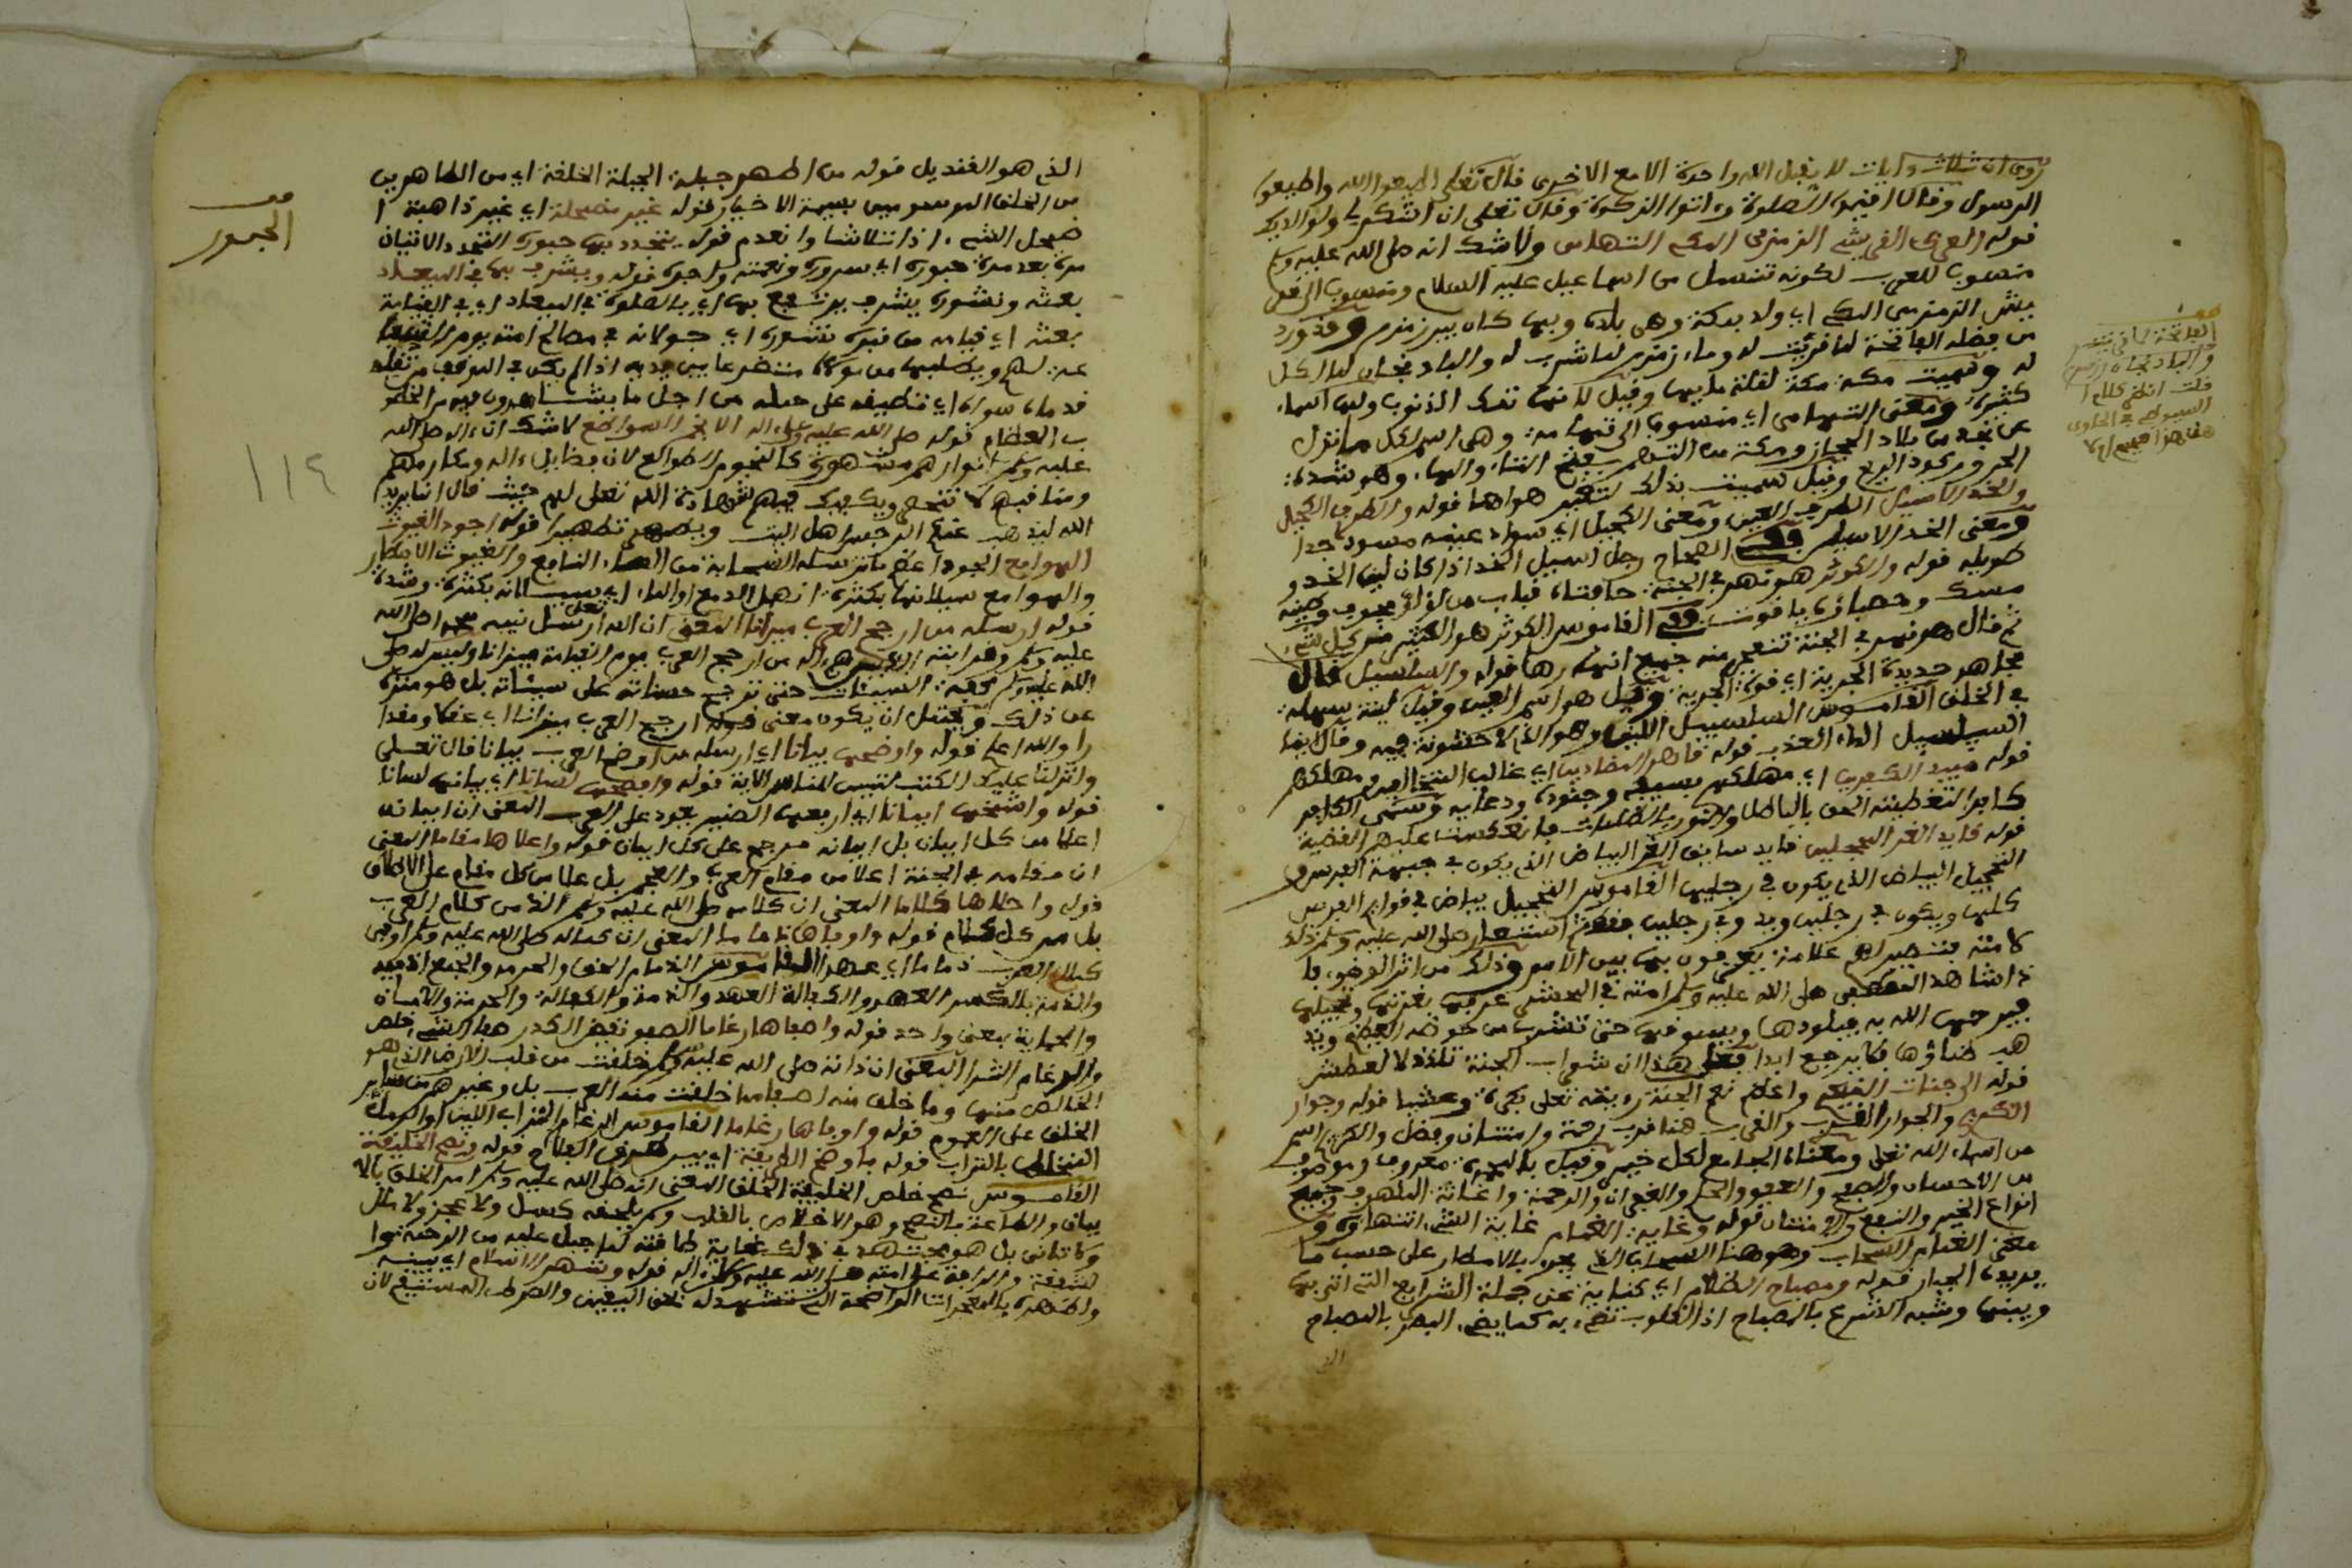 روي ان ثلاث ءايات لا يقبل الله واحدة الا مع الاخرى قال تعلى اطيعوا الله واطيعوا
الرسول وقال اقيموا الصلوة وءاتوا الزكوة وقال تعلى ان اشكر لي ولوالديك
قوله العربي القرشي الزمزمي المكي التهامي ولا شك انه صلى الله عليه وسلم
منسوب للعرب لكونه تنسل من اسماعيل عليه السلام ومنسوب الى قر
يش الزمزمي المكي اي ولد بمكة وهي بلده وبها كان بير زمزم وقد ورد
من فضله الفاتحة لما قرئت له وماء زمزم لما شرب له والباذنجان لما اكل
له وسميت مكة مكة لقلة مايها وقيل لانها تمك الذنوب ولها اسماء
كثيرة ومعنى التهامي اي منسوب الى تهامة وهي اسم لكل ما نزل
عن نجد من بلاد الحجاز ومكة من التهم بفتح التاء والهاء وهو شدة
الحر وركود الريح وقيل سميت بذلك لتغير هواها قوله والطرف الكحيل
والخد الاسيل الطرف العين ومعنى الكحيل اي سواد عينه مسود جدا
ومعنى الخد الاسيل وفي الصحاح رجل اسيل الخد اذا كان لين الخد و
طويله قوله والكوثر هو نهر في الجنة حافتاه قباب من لؤلؤ مجوف وطينه
مسك وحصباؤه ياقوت وفي القاموس الكوثر هو الكثير من كل شيء
ثم قال هو نهر في الجنة تتفجر منه جميع انهارها قوله والسلسبيل قال
مجاهد حديدة الجرية اي قوية الجرية وقيل هو اسم العين وقيل لينة سهلة
في الحلق القاموس السلسبيل اللين وهو الذي لا خشونة فيه وقال ايضا
السلسبيل الماء العذب قوله قاهر المضادين اي غالب المخالفين ومهلكهم
قوله مبيد الكافرين اي مهلكهم بسيفه وجنوده ودعايه وسمي الكافر
كافرا لتغطيته الحق بالباطل والنور بالظلمات فانعكست عليهم القضية
قوله قايد الغر المحجلين قايد سايق الغر البياض الذي يكون في جبهة الفرس و
التحجيل البياض الذي يكون في رجليها القاموس التحجيل بياض في قوايم الفرس
كلها ويكون في رجلين ويد وفي رجلين فقط استعار صلى الله عليه وسلم ذلك
لامته فتصير لهم علامة يعرفون بها بين الامم وذلك من اثر الوضوء فا
ذا شاهد المصطفى صلى الله عليه وسلم امته في المحشر عرفها بغرتها وتحجيلها
فيرحمها الله به فيقودها ويسوقها حتى تشرب من حوضه العظيم ويذ
هب ظماؤها فلا يرجع ابدا فعلى هذا ان شراب الجنة تلذذ لا لعطش
قوله الى جنات النعيم واعظم نعم الجنة رؤيته تعلى بكرة وعشيا قوله وجوار
الكريم والجوار القرب والقرب هنا قرب رحمة وامتنان وفضل والكريم اسم
من اسماء الله تعلى ومعناه الجامع لكل خير وقيل بالبر معروف وموصوف
من الاحسان والصفح والعفو والحلم والغفران والرحمة واغاثة الملهوف وجميع
انواع الخير والنفع والامتنان قوله وغاية الغمام غاية الشيء انتهاؤه و
معنى الغمام السحاب وهو هنا السحاب الذي يجود بالامطار على حسب ما
يريده الجبار قوله ومصباح الظلام اي كناية عن جملة الشرايع التي اتى بها
وبينها وشبه الشرع بالمصباح اذ القلوب تضيء به كما يضيء البصر بالمصباح
الذي
الفاتحة لما قرئت
والباذنجان
قلت انظر كلام ا
السيوطي في الحاوي
هل هذا صحيح ام لا
الذي هو القنديل قوله من اطهر جبلة الجبلة الخلقة اي من الطاهرين
من الخلق الموسومين بسيمة الاخيار قوله غير مضمحلة اي غير ذاهبة ا
ضمحل الشيء اذا تلاشا وانعدم قوله يتجدد بها حبوره التجدد الاتيان
مرة بعد مرة حبوره اي سروره ونعمته واجره قوله ويشرف بها في الميعاد
بعثه ونشوره يشرف يرتفع بها اي بالصلوة في الميعاد اي في القيامة
بعثه اي قيامه من قبره نشوره اي جولانه في مصالح امته يوم القيامة
فدماه سواه اي تطيقه على حمله من اجل ما يشاهدون فيه من الخطو
ب العظام قوله صلى الله عليه وعلى اله الانجم الطوالع لا شك ان ءاله صلى الله
عليه وسلم انوارهم مشهورة كالنجوم الطوالع لان فضايل ءاله ومكارمهم
ومناقبهم لا تنحصر ويكفيك فيهم شهادة الله تعلى لهم حيث قال انما يريد
الله ليذهب عنكم الرجس اهل البيت ويطهركم تطهيرا قوله اجود الغيوث
الهوامع الجود اعظم ما ترسله السحابة من الماء النافع والغيوث الامطار
والهوامع سيلانها بكثرة انهمل الدمع او الماء اي سيلانه بكثرة وشدة
قوله ارسله من ارجح العرب ميزانا المعنى ان الله تعلى ارسل نبيه محمدا صلى الله
عن ذلك ويحتمل ان يكون معنى قوله ارجح العرب ميزانا اي عقلا ومقدا
را والله اعلم قوله واوضحها بيانا اي ارسله من اوضح العرب بيانا قال تعلى
وانزلنا عليك الكتب لتبين للناس الاية قوله وافصحها لسانا اي بيانها لسانا
قوله واشمخها ايمانا اي ارفعها الضمير يعود على العرب المعنى ان ايمانه
اعلا من كل ايمان بل ايمانه مرجح على كل ايمان قوله واعلاها مقاما المعنى
ان مقامه في الجنة اعلا من مقام العرب والعجم بل اعلا من كل مقام على الاطلاق
قوله واحلاها كلاما المعنى ان كلامه صلى الله عليه وسلم الذ من كلام العرب
بل من كل كلام قوله واوفاها ذماما المعنى ان كماله صلى الله عليه وسلم اوفى
والذمة بالكسر العهد والكفالة العهد والذمة والكفالة والحرمة والامان
والحماية بمعنى واحد قوله واصفاها رغاما الصفو نقيض الكدر صفا الشيء خلص
والرغام الثرا المعنى ان ذاته صلى الله عليه وسلم خلقت من قلب الارض الذي هو
الخالص منها وما خلق منه اصفا مما خلقت منه العرب بل وغيرهم من ساير
الخلق على العموم قوله واوفاها رغاما القاموس الرغام التراب اللين او الرمل
المختلط بالتراب قوله فاوضح الطريقة اي بين طريق الفلاح قوله ونصح الخليقة
القاموس نصح خلص الخليقة الخلق المعنى انه صلى الله عليه وسلم امر الخلق بالا
يمان والطاعة بالنصح وهو الاخلاص بالقلب ولم يلحقه كسل ولا عجز ولا ملل
ولا تانى بل هو مجتهد في ذلك غاية طاقته لما جبل عليه من الرحمة و ا
لشفقة والرافة على امته صلى الله عليه وعلى اله قوله وشهر الاسلام اي بينه
واظهره بالمعجزات الواضحة التي تشهد له بحق اليقين والصراط المستقيم لان
الجمهور
١١٤